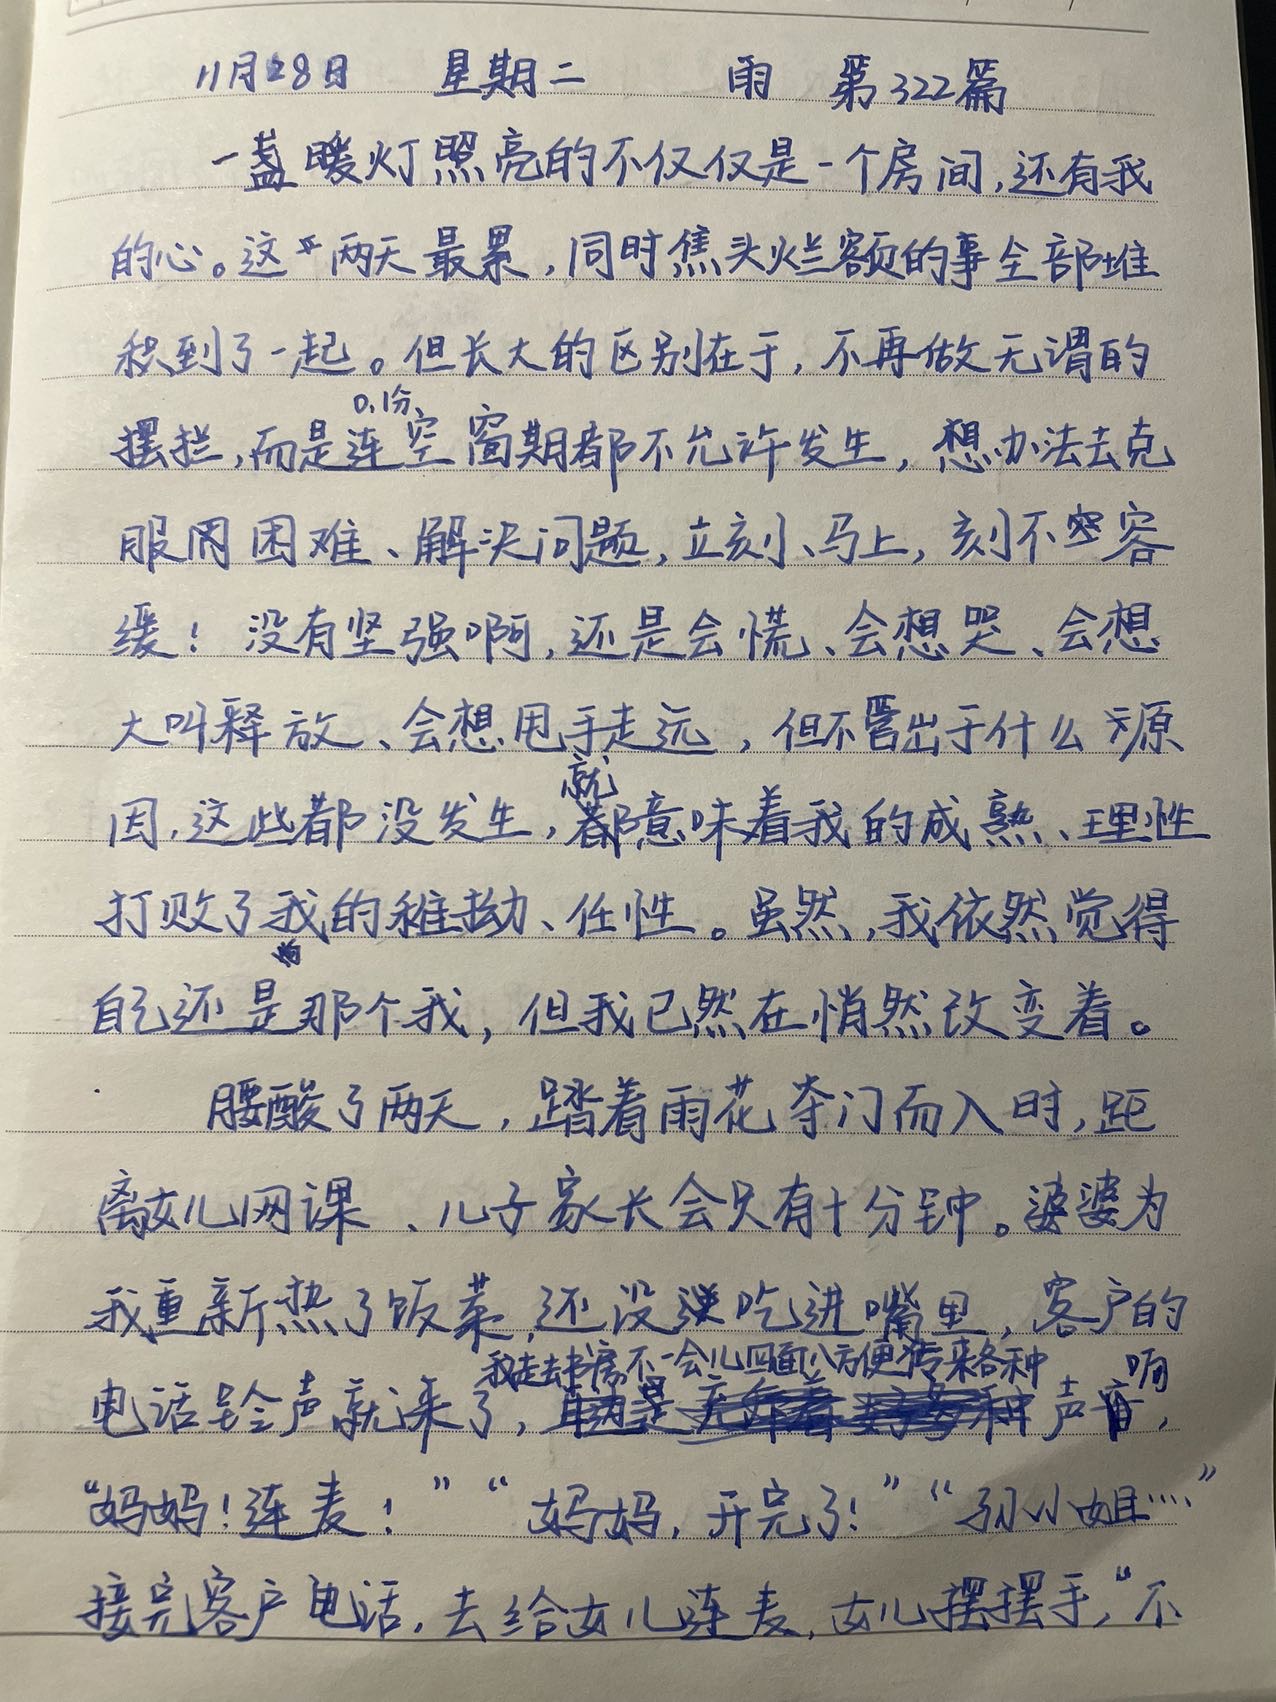 11月28日 星期二 雨 第322篇
一盏暖灯照亮的不仅仅是一个房间,还有我
的心。这两天最累,同时焦头烂额的事全部堆
积到了一起。但长大的区别在于,不再做无谓的
0.1分
摆拦,而是连空窗期都不允许发生,想办法去克
服困难、解决问题,立刻、马上,刻不容
缓!没有坚强啊,还是会慌、会想哭、会想
大叫释放、会想甩手走远,但不管出于什么原
就
因,这些都没发生,意味着我的成熟、理性
打败了我的稚拗、任性。虽然,我依然觉得
自己还是那个我,但我已然在悄然改变着。
腰酸了两天,踏着雨花夺门而入时,距
离女儿网课、儿子家长会只有十分钟。婆婆为
我重新热了饭菜,还没吃进嘴里,客户的
我走去书房不一会儿四面八方便传来各种 响
电话铃声就来了,声音,
“妈妈!连麦!”“妈妈,开完了!”“孙小姐……”
接完客户电话,去给女儿连麦,女儿摆摆手,“不